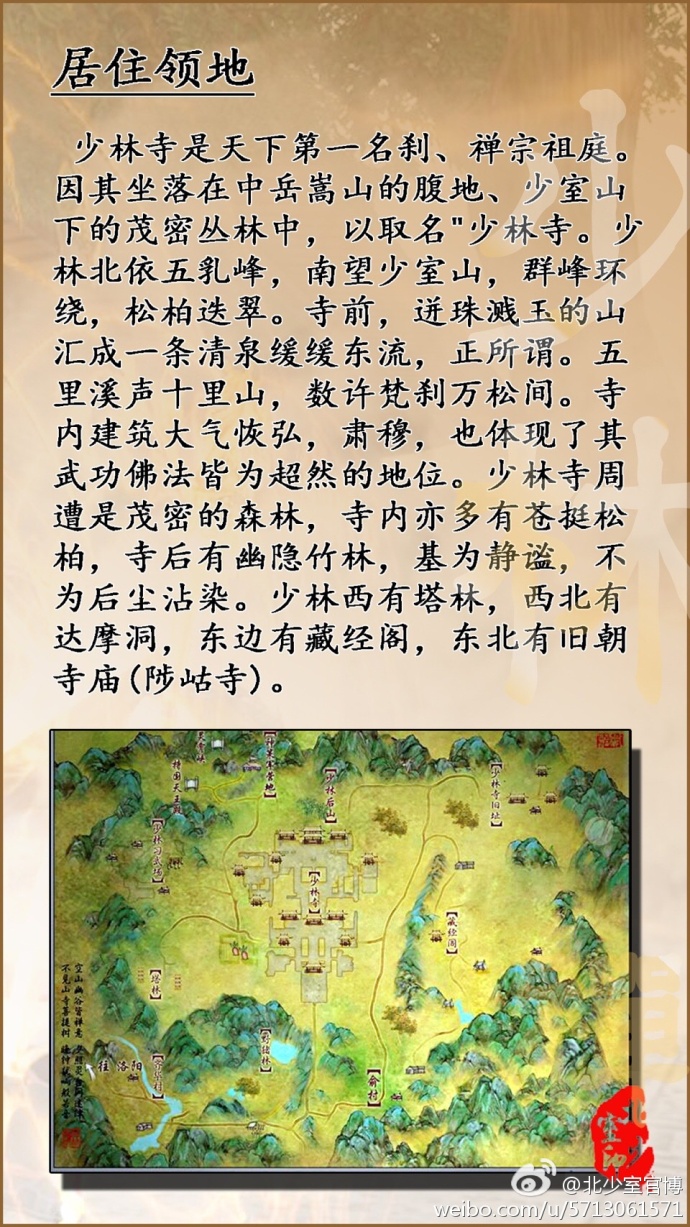 居住领地
少林寺是天下第一名刹、禅宗祖庭。
因其坐落在中岳嵩山的腹地、少室山
下的茂密丛林中，以取名"少林寺。少
林北依五乳峰，南望少室山，群峰环
绕，松柏迭翠。寺前，迸珠溅玉的山
汇成一条清泉缓缓东流，正所谓。五
里溪声十里山，数许梵刹万松间。寺
内建筑大气恢弘，肃穆，也体现了其
武功佛法皆为超然的地位。少林寺周
遭是茂密的森林，寺内亦多有苍挺松
柏，寺后有幽隐竹林，基为静谧，不
为后尘沾染。少林西有塔林，西北有
达摩洞，东边有藏经阁，东北有旧朝
寺庙(陟岵寺)。
少林
持国天王殿
【少林后山】
【少林寺旧址】
【少林习武场】
【少林寺】
【藏经阁】
【塔林】
空山幽谷皆禅意
不见山寺菩提树
【野猪林】
往 洛阳
【俞村】
@北少室官博
weibo.com/u/5713061571